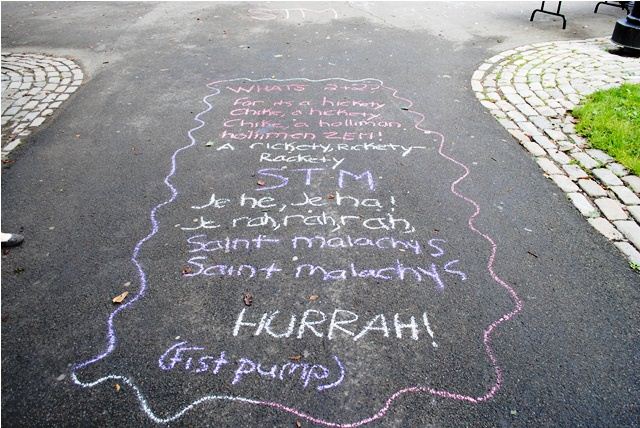 STM
WHATS 2+2?
For its a hickety
Chike, a hickety
Chike, a hallman
hallimen ZEM!
A rickety, Rickety-
Rackety
STM
Je he, Je ha!
Je rah, rah, rah,
Saint malachy's
Saint malachy's
HURRAH!
(Fist pump)